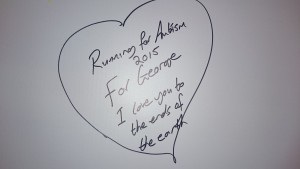 Running for Autism
2015
For George
I love you to
the ends of
the earth